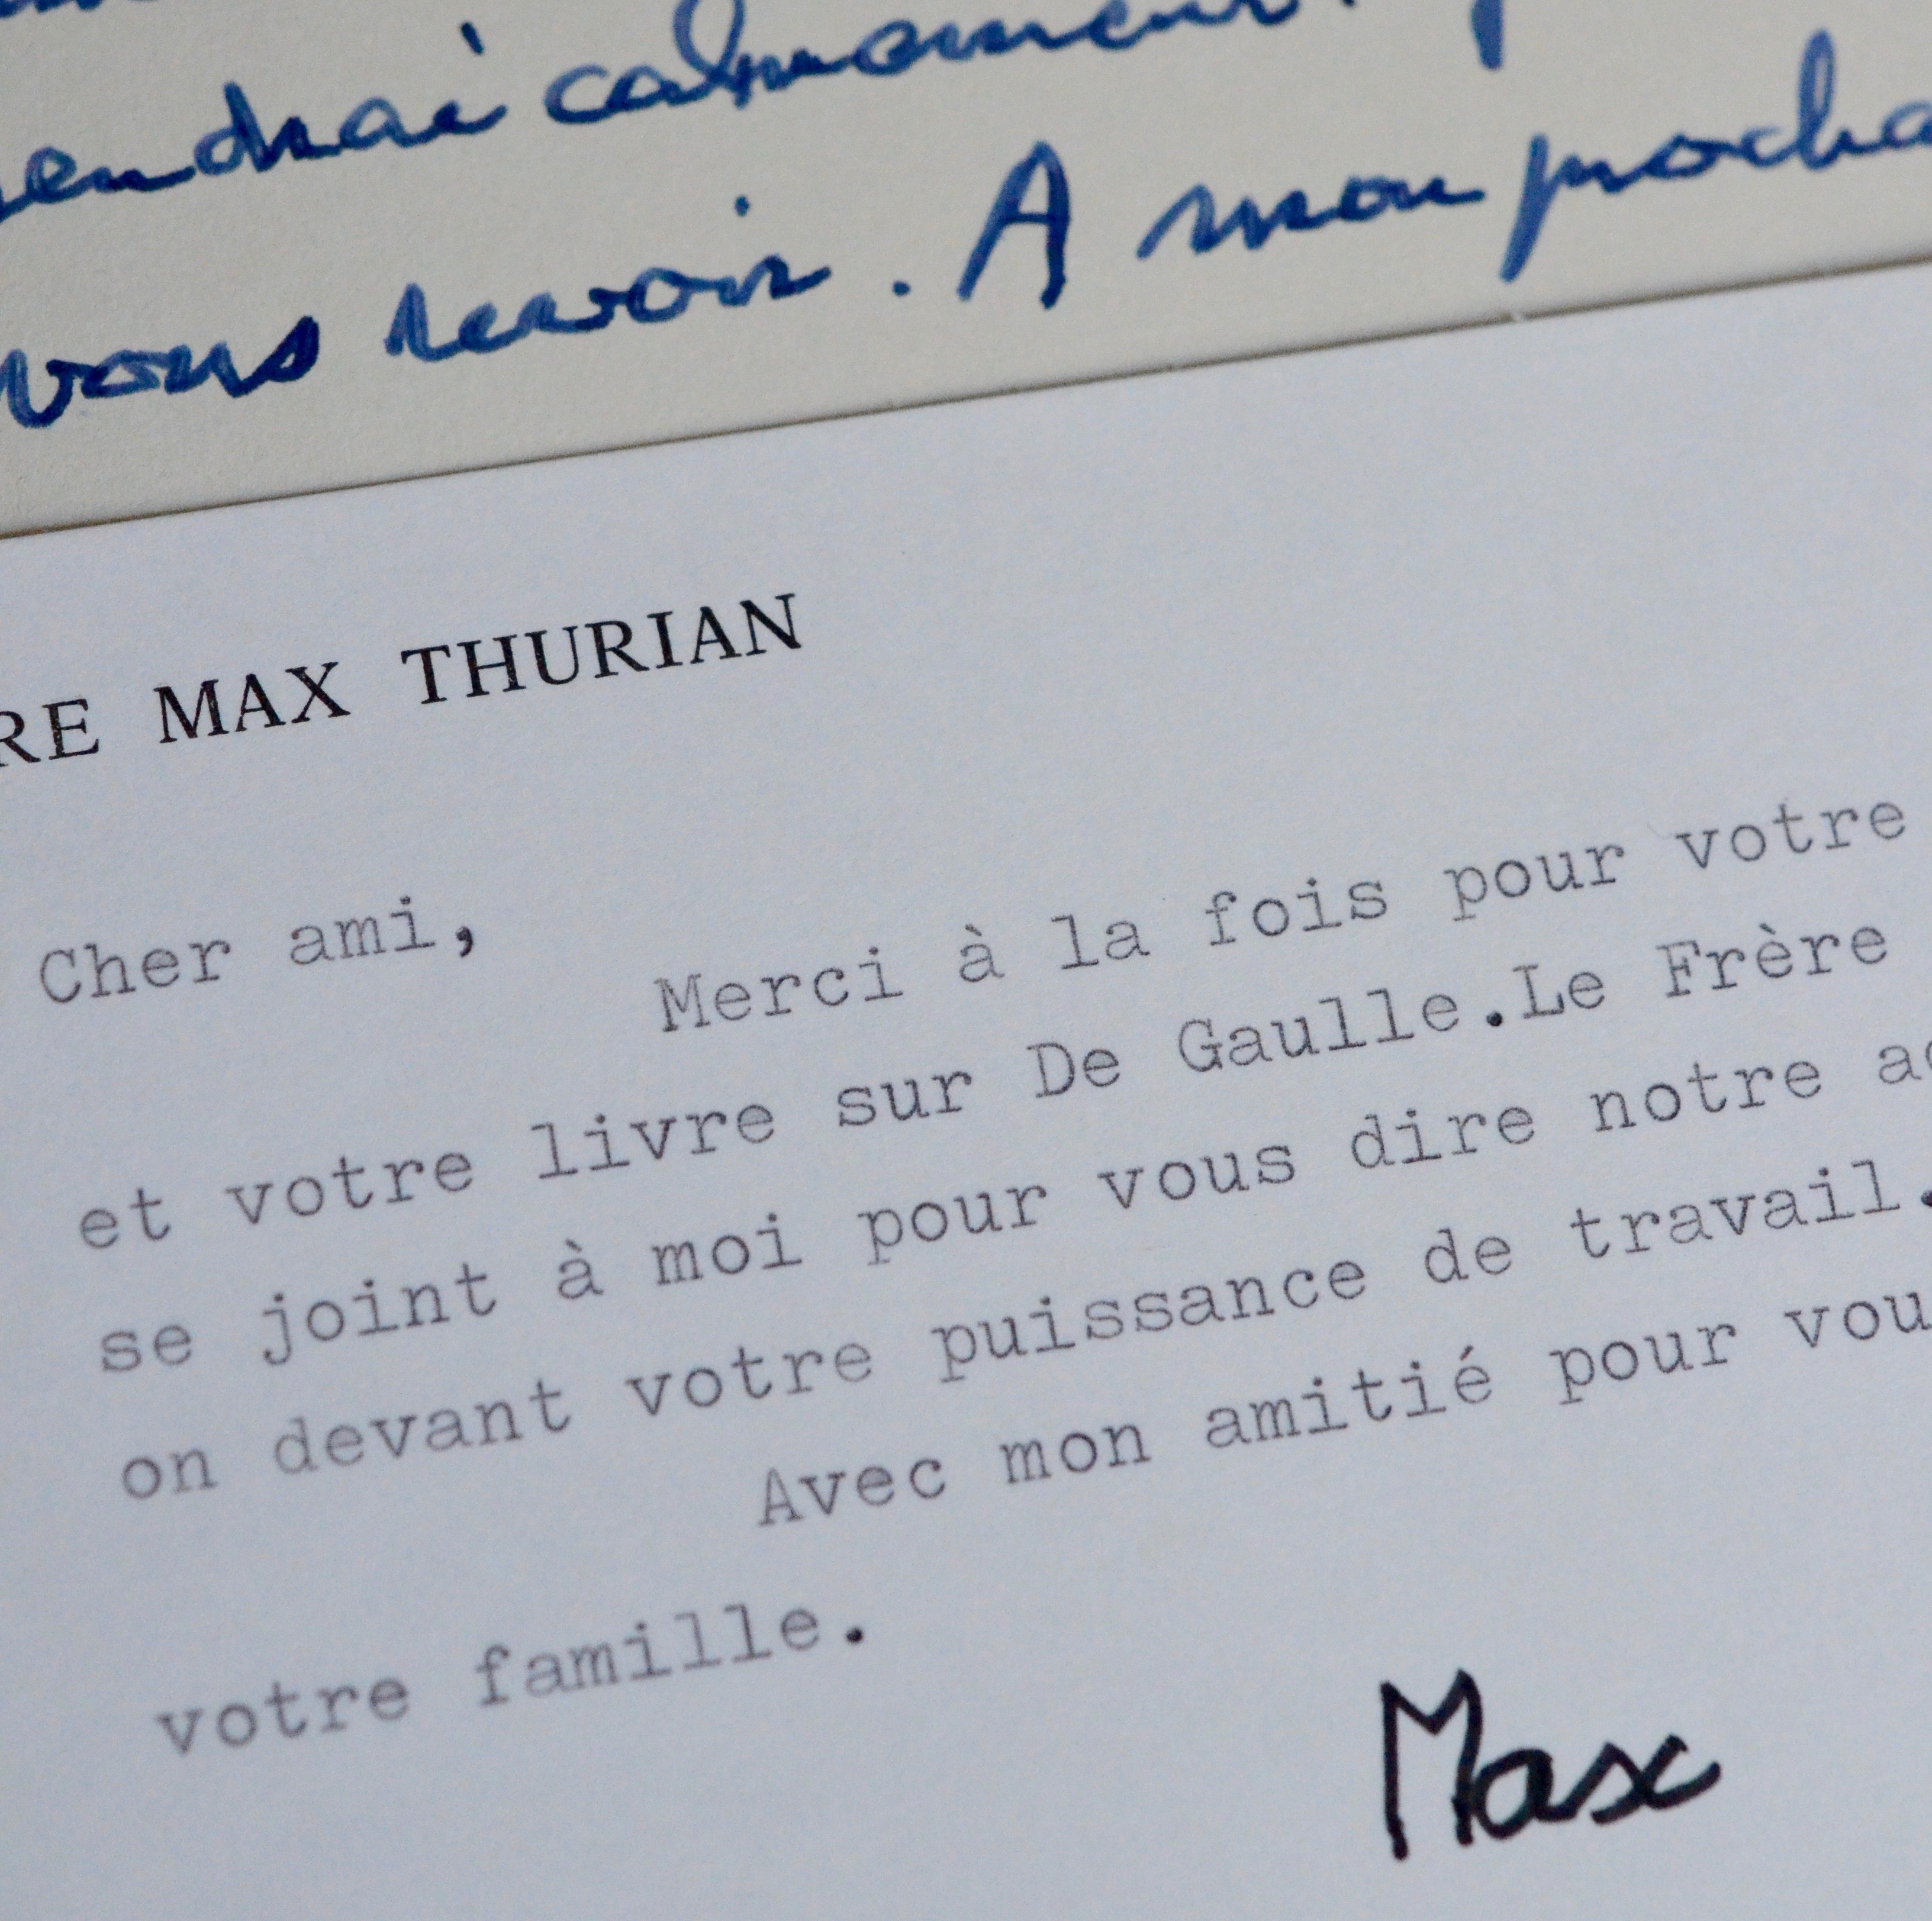 endrai calmement.
vous revoir. A mon procha
RE MAX THURIAN
Cher ami,
Merci à la fois pour votre
et votre livre sur De Gaulle.Le Frère
se joint à moi pour vous dire notre ad
on devant votre puissance de travail.
Avec mon amitié pour vou
votre famille.
Max